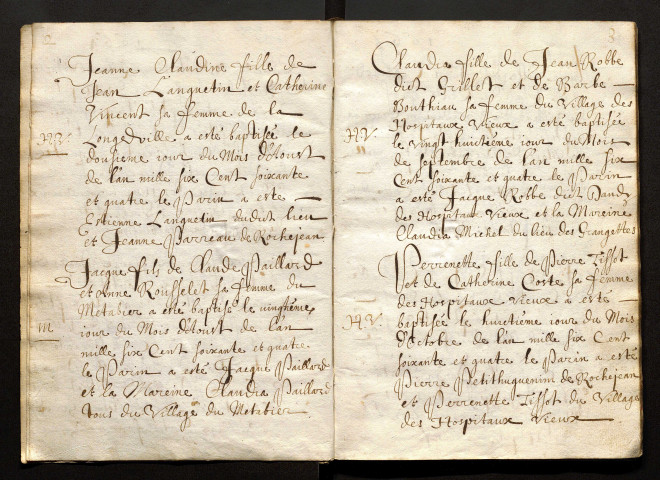 2
Jeanne Claudine fille de
Jean Languetin et Catherine
Vincent sa femme de la
Longeville a esté baptisée le
dousieme iour du Mois d'Aoust
de l'an mille six Cent soixante
et quatre le parin a este
Estienne Languetin dudit lieu
et Jeanne Parreau de Rochejean
Jacque fils de Claude Paillard
et Anne Rousselet sa femme du
Metabier a esté baptisé le vingtième
M
iour du Mois d'Aoust de l'an
mille six Cent soixante et quatre
le Parin a esté Jacque Paillard
et la Mareine Claudia Paillard
tous du Village du Metabier
3
Claudia fille de Jean Robbe
dict Grillet et de Barbe
Bouthiau sa femme du Village des
Hospitaux Vieux a esté baptisée
H.V.
le vingt huictième iour du Mois
de septembre de l'an mille six
Cent soixante et quatre le parin
a esté Jacque Robbe dict
des Hospitaux Vieux et la Mareine
Claudia Michel du lieu des Grangettes
Perrenette fille de Pierre Tissot
et de Catherine Coste sa femme
des Hospitaux Vieux a esté
H.V.
baptisée le huictième iour du Mois
d'Octobre de l'an mille six Cent
soixante et quatre le parin a esté
Pierre Petithuguenin de Rochejean
et Perrenette Tissot du Village
des Hospitaux Vieux